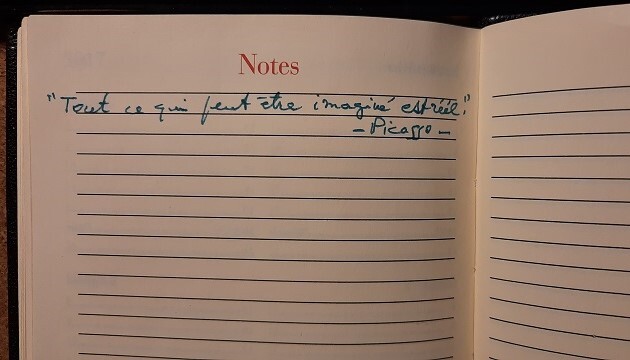 Notes
"Tout ce qui peut être imaginé est réel."
- Picasso -